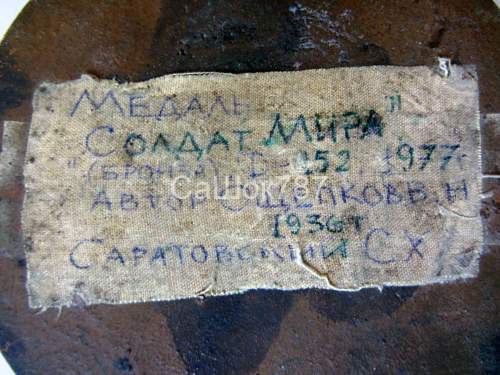 Медаль
Солдат Мира"
"(бронза) D-152 1977г
Автор Ощепков В.Н
1936 г
Саратовский СХ
СаШок787